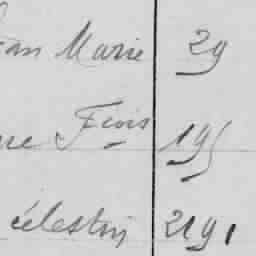 an Marie 29
ue Fcois 195
célestin 2191